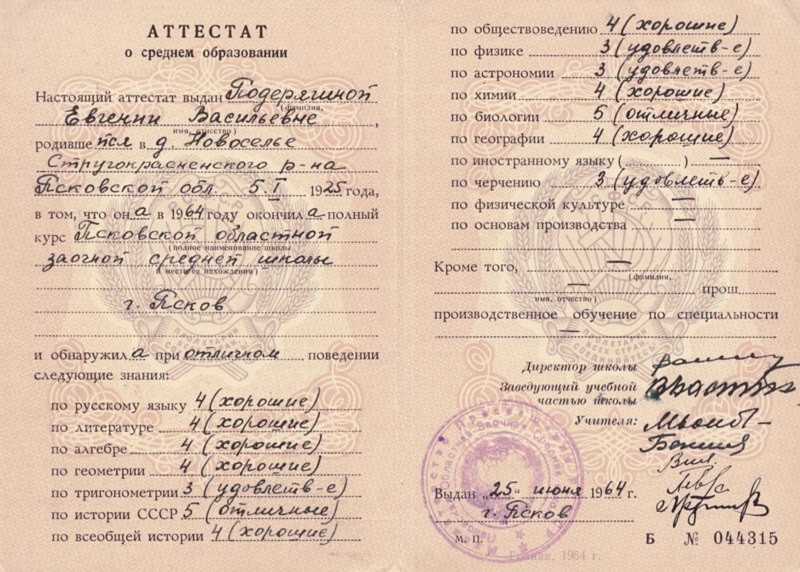 АТТЕСТАТ
о среднем образовании
Настоящий аттестат выдан Подерягиной
(фамилия,
Евгении Васильевне,
имя, отчество)
родившейся в д. Новоселье
Стругокрасненского р-на
Псковской обл. 5.I 1925 года,
в том, что она в 1964 году окончила полный
курс Псковской областной
(полное наименование школы
заочной средней школы
и место ее нахождения)
г. Псков
и обнаружила при отличном поведении
следующие знания:
по русскому языку 4 (хорошие)
по литературе 4 (хорошие)
по алгебре 4 (хорошие)
по геометрии 4 (хорошие)
по тригонометрии 3 (удовлетв-е)
по истории СССР 5 (отличные)
по всеобщей истории 4 (хорошие)
по обществоведению 4 (хорошие)
по физике 3 (удовлетв-е)
по астрономии 3 (удовлетв-е)
по химии 4 (хорошие)
по биологии 5 (отличные)
по географии 4 (хорошие)
по иностранному языку ( ) —
по черчению 3 (удовлетв-е)
по физической культуре —
по основам производства —
Кроме того, —
(фамилия,
— прош.
имя, отчество)
производственное обучение по специальности
—
Директор школы
Заведующий учебной
частью школы
Учителя:
Выдан „25" июня 1964 г.
г. Псков
М. П.
Б № 044315
Гознак. 1964 г.